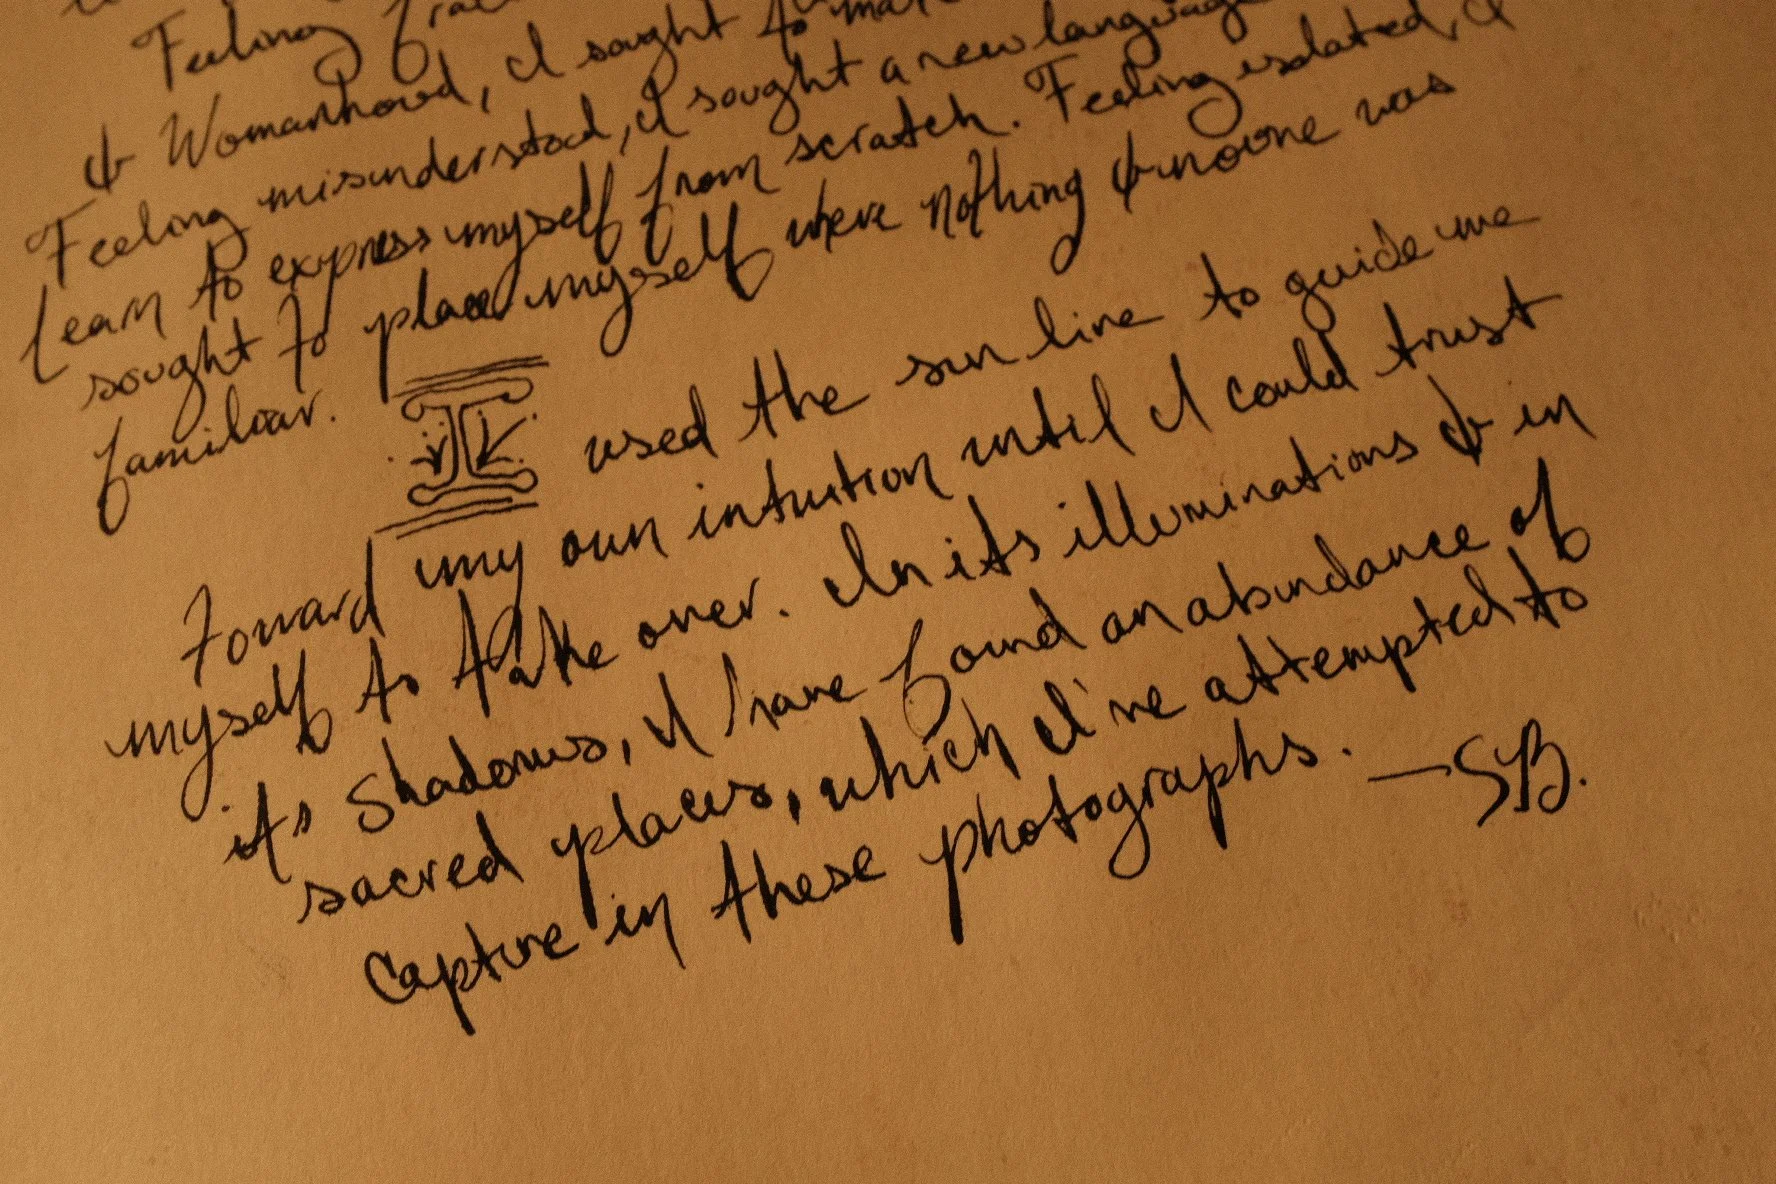 Feeling
& Womanhood, I sought to
Feeling misunderstood, I sought a new language
learn to express myself from scratch. Feeling isolated, I
sought to place myself where nothing & no one was
familiar.
I used the sun line to guide me
Forward my own intuition until I could trust
myself to take over. In its illuminations & in
its shadows, I have found an abundance of
sacred places, which I've attempted to
capture in these photographs. —SB.